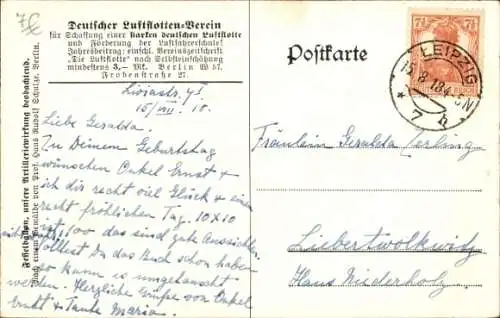 Deutscher Luftflotten-Verein
für Schaffung einer starken deutschen Luftflotte
und Förderung der Luftfahrerschule!
Jahresbeitrag: einschl. Vereinszeitschrift
„Die Luftflotte" nach Selbsteinschätzung
mindestens 3,— Mk. Berlin W 57,
Frobenstraße 27.
Postkarte
7½
LEIPZIG
15.8.18 4-5N
* 7 h
Liviastr.
15/VIII. 18.
Liebe Geralda.
Zu Deinem Geburtstag
wünschen Onkel Ernst &
ich dir recht viel Glück & einen
recht fröhlichen Tag. 10 x 10
ist 100 das sind gute Aussichten
Solltest Du das Buch schon haben
so kann es umgetauscht
werden. Herzliche Grüße von Onkel
Ernst & Tante Maria.
Fräulein Geralda
Liebertwolkwitz
Haus Niederholz
Fesselballon, unsere Artilleriewirkung beobachtend.
Nach einem Gemälde von Prof. Hans Rudolf Schulze, Berlin.